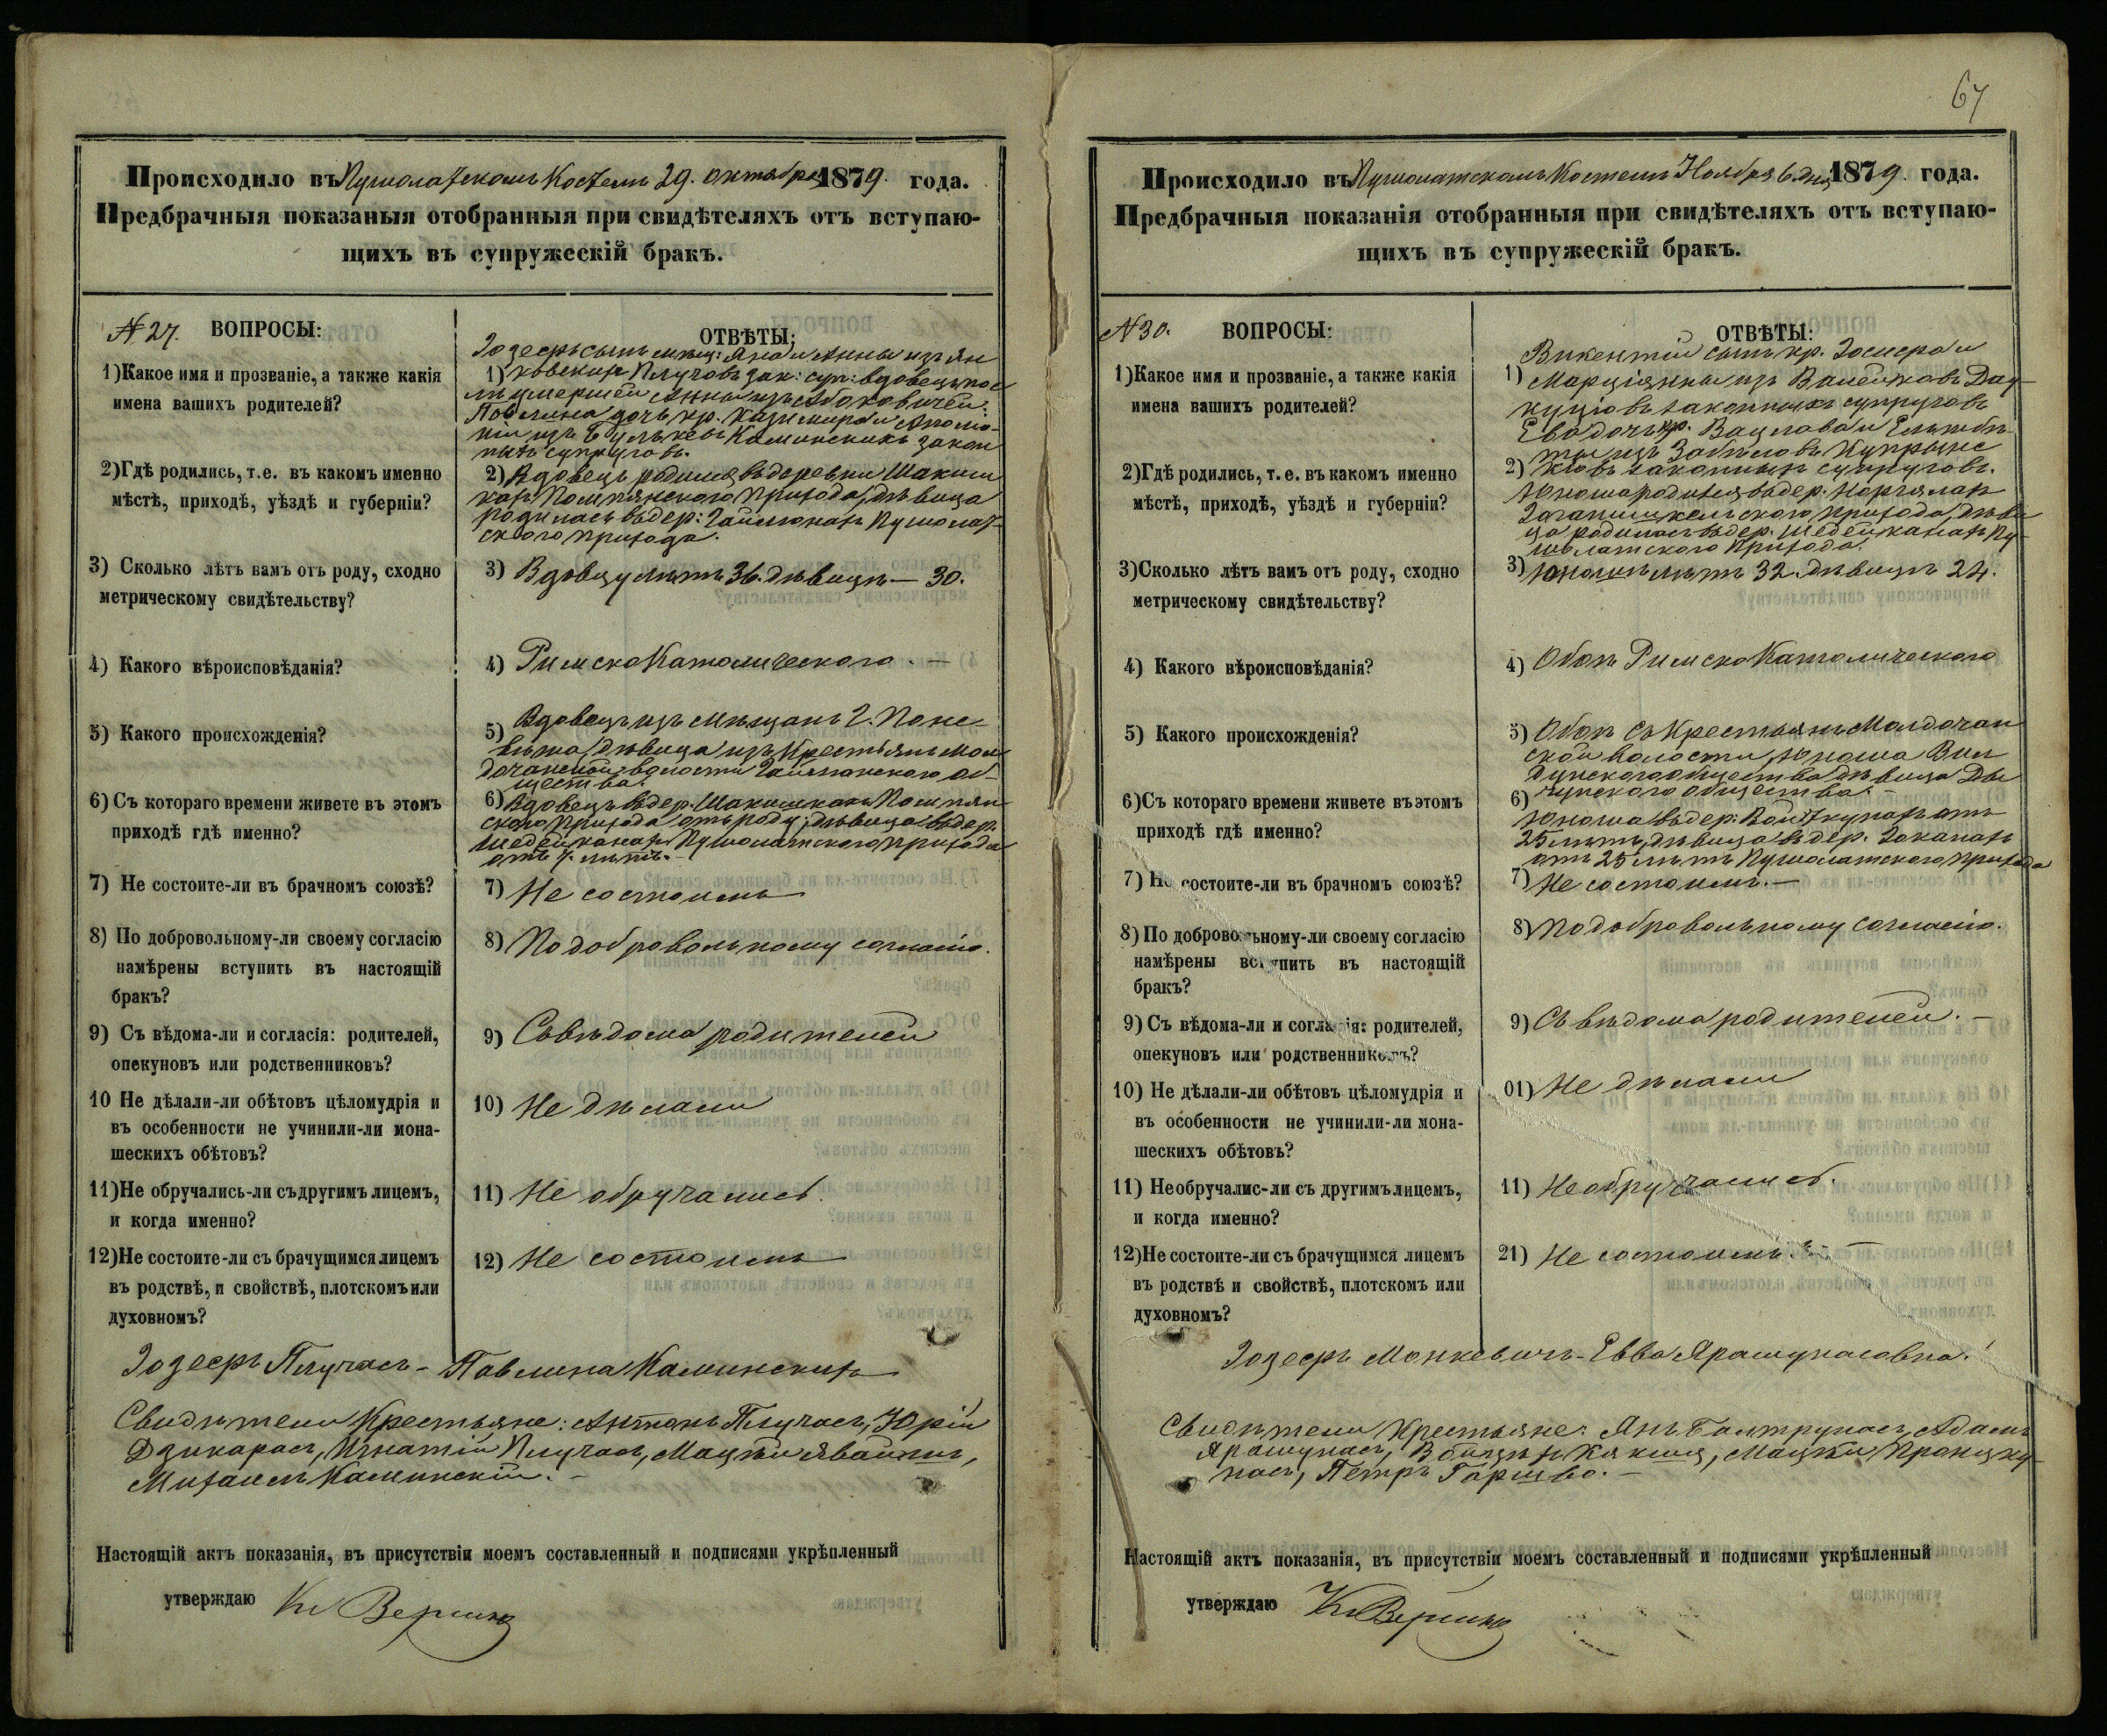 Происходило въ Пушолатскомъ Костелѣ 29. октября 1879. года.
Предбрачныя показаныя отобранныя при свидѣтеляхъ отъ вступаю-
щихъ въ супружескій бракъ.
№ 27. ВОПРОСЫ:
ОТВѢТЫ:
1)Какое имя и прозваніе, а также какія
имена вашихъ родителей?
Іозефъ сынъ мѣщ: Яна и Анны изъ Ян
1) ковскихъ Плучовъ зак: суп: вдовецъ пос
лѣ умершей Анны изъ
Павлина дочь кр. Казимира и Аполо-
ніи изъ Камински​хъ закон
ныхъ супруговъ.
2)Гдѣ родились, т.е. въ какомъ именно
мѣстѣ, приходѣ, уѣздѣ и губерніи?
2) Вдовецъ родился въ деревни Шакиш
кахъ Помпянского прихода, дѣвица
родилась въ дер: Гайлюнахъ Пушолат-
ского прихода.
3) Сколько лѣтъ вамъ отъ роду, сходно
метрическому свидѣтельству?
3) Вдовцу лѣтъ 36. дѣвицѣ — 30.
4) Какого вѣроисповѣданія?
4) Римско Католического. —
5) Какого происхожденія?
5) Вдовецъ изъ мѣщанъ г. Поне-
вѣжа, дѣвица изъ Крестьянъ
волости об-
щества.
6) Съ котораго времени живете въ этомъ
приходѣ гдѣ именно?
6) Вдовецъ въ дер. Шакишкахъ Помпян
ского прихода отъ роду, дѣвица въ дер.
Шедейконахъ Пушолатского прихода
отъ лѣтъ. —
7) Не состоите-ли въ брачномъ союзѣ?
7) Не состоимъ
8) По добровольному-ли своему согласію
намѣрены вступить въ настоящій
бракъ?
8) По добровольному согласію.
9) Съ вѣдома-ли и согласія: родителей,
опекуновъ или родственниковъ?
9) Съ вѣдома родителей
10 Не дѣлали-ли обѣтовъ цѣломудрія и
въ особенности не учинили-ли мона-
шескихъ обѣтовъ?
10) Не дѣлали
11)Не обручались-ли съ другимъ лицемъ,
и когда именно?
11) Не обручались.
12)Не состоите-ли съ брачущимся лицемъ
въ родствѣ, и свойствѣ, плотскомъ или
духовномъ?
12) Не состоимъ
Іозефъ Плучасъ - Павлина Каминскихъ
Свидѣтели Крестьяне: Антонъ Плучасъ, Юрій
Дзикарасъ, Игнатій Плучасъ, Мацѣй
Михаилъ Каминскій. —
Настоящій актъ показанія, въ присутствіи моемъ составленный и подписями укрѣпленный
утверждаю
67
Происходило въ Пушолатскомъ Костелѣ Ноября 6. дня 1879. года.
Предбрачныя показанія отобранныя при свидѣтеляхъ отъ вступаю-
щихъ въ супружескій бракъ.
№ 30. ВОПРОСЫ:
ОТВѢТЫ:
1)Какое имя и прозваніе, а также какія
имена вашихъ родителей?
Викентій сынъ кр.
1) Марціянны изъ
законныхъ супруговъ
Ева дочь кр. Вацлава и Ельжбѣ-
ты изъ
законныхъ супруговъ.
2)Гдѣ родились, т. е. въ какомъ именно
мѣстѣ, приходѣ, уѣздѣ и губерніи?
2)
Юноша родился въ дер.
прихода, дѣви
ца родилась въ дер. Шедейканахъ Пу-
шолатского прихода.
3)Сколько лѣтъ вамъ отъ роду, сходно
метрическому свидѣтельству?
3) Юношѣ лѣтъ 32. дѣвицѣ 24.
4) Какого вѣроисповѣданія?
4) Обоихъ Римско Католического
5) Какого происхожденія?
5) Обоихъ съ Крестьянъ
ской волости, юноша
общества дѣвица
общества. —
6)Съ котораго времени живете въ этомъ
приходѣ гдѣ именно?
6)
Юноша въ дер: Войткунахъ отъ
25 лѣтъ, дѣвица въ дер.
отъ 25 лѣтъ Пушолатского прихода
7) Не состоите-ли въ брачномъ союзѣ?
7) Не состоимъ. —
8) По добровольному-ли своему согласію
намѣрены вступить въ настоящій
бракъ?
8) По добровольному согласію.
9) Съ вѣдома-ли и согласія: родителей,
опекуновъ или родственниковъ?
9) Съ вѣдома родителей. —
10) Не дѣлали-ли обѣтовъ цѣломудрія и
въ особенности не учинили-ли мона-
шескихъ обѣтовъ?
01) Не дѣлали
11) Необручалис-ли съ другимъ лицемъ,
и когда именно?
11) Не обручались.
12)Не состоите-ли съ брачущимся лицемъ
въ родствѣ и свойствѣ, плотскомъ или
духовномъ?
21) Не состоимъ. —
Іозефъ Монкевичъ - Евва Ярашунасовна.
Свидѣтели Крестьяне: Янъ Балтрунасъ, Адамъ
Ярашунасъ, Мацѣй
насъ, Петръ
Настоящій актъ показанія, въ присутствіи моемъ составленный и подписями укрѣпленный
утверждаю